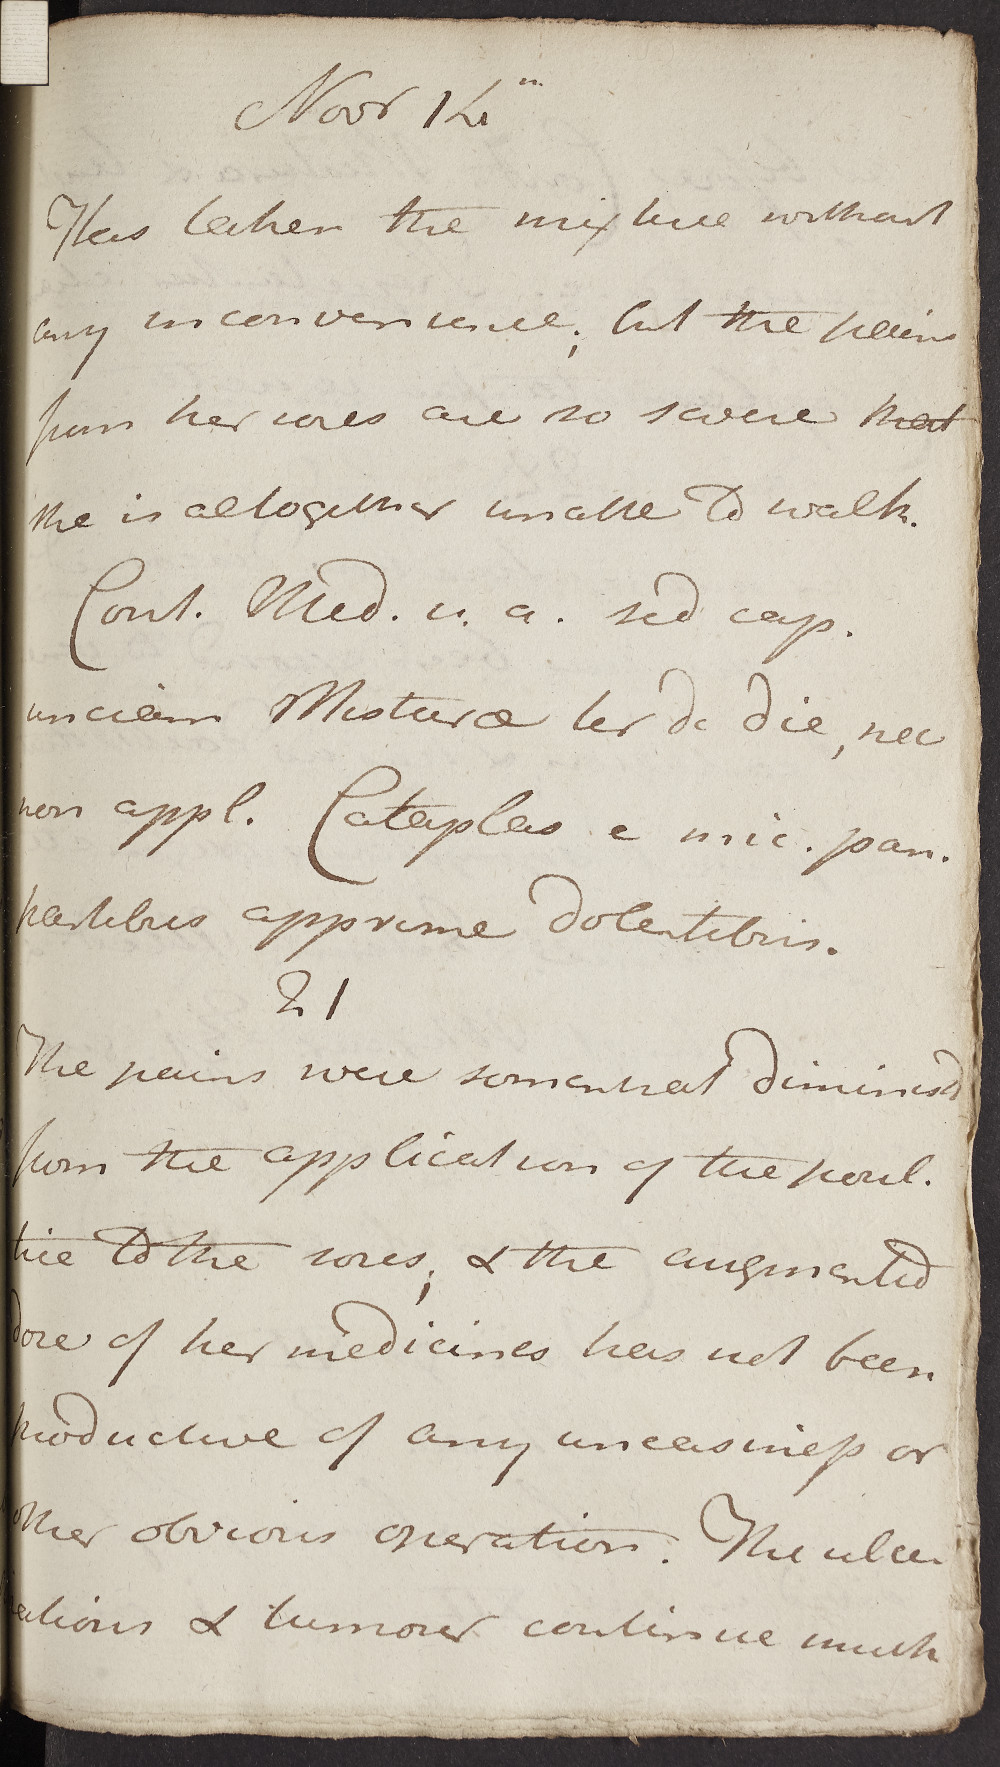 Novr 14th
Has taken the mixture without
any inconvenience; but the pains
from her sores are so severe that
she is altogether unable to walk.
Cont. Med. u. a. sed cap.
unciam Misturæ ter de die, nec
non appl. Cataplas e mic. pan.
partibus apprime dolentibus.
21
The pains were somewhat diminishd
from the application of the poul.
tice to the sores; & the augmented
dose of her medicines has not been
productive of any uneasiness or
other obvious operation. The ulcer
ations & tumour continue much